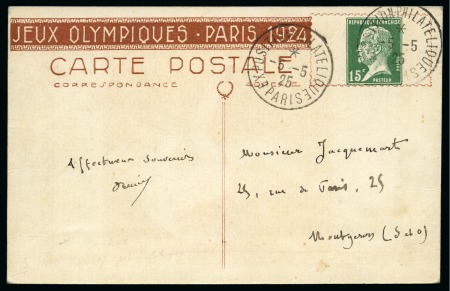 JEUX OLYMPIQUES · PARIS 1924
CARTE POSTALE
CORRESPONDANCE
EXPOSITION PHILATELIQUE
PARIS
5-5
25
15c
PASTEUR
PHILATELIQUE
-5
Affectueux souvenirs
Monsieur Jacquemart
25, rue de Paris, 25
Montgeron (S et O)